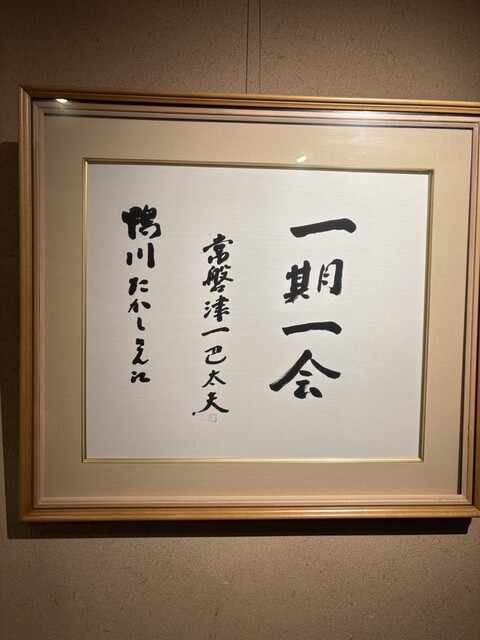 一期一会
常磐津一巴太夫
鴨川たかし江